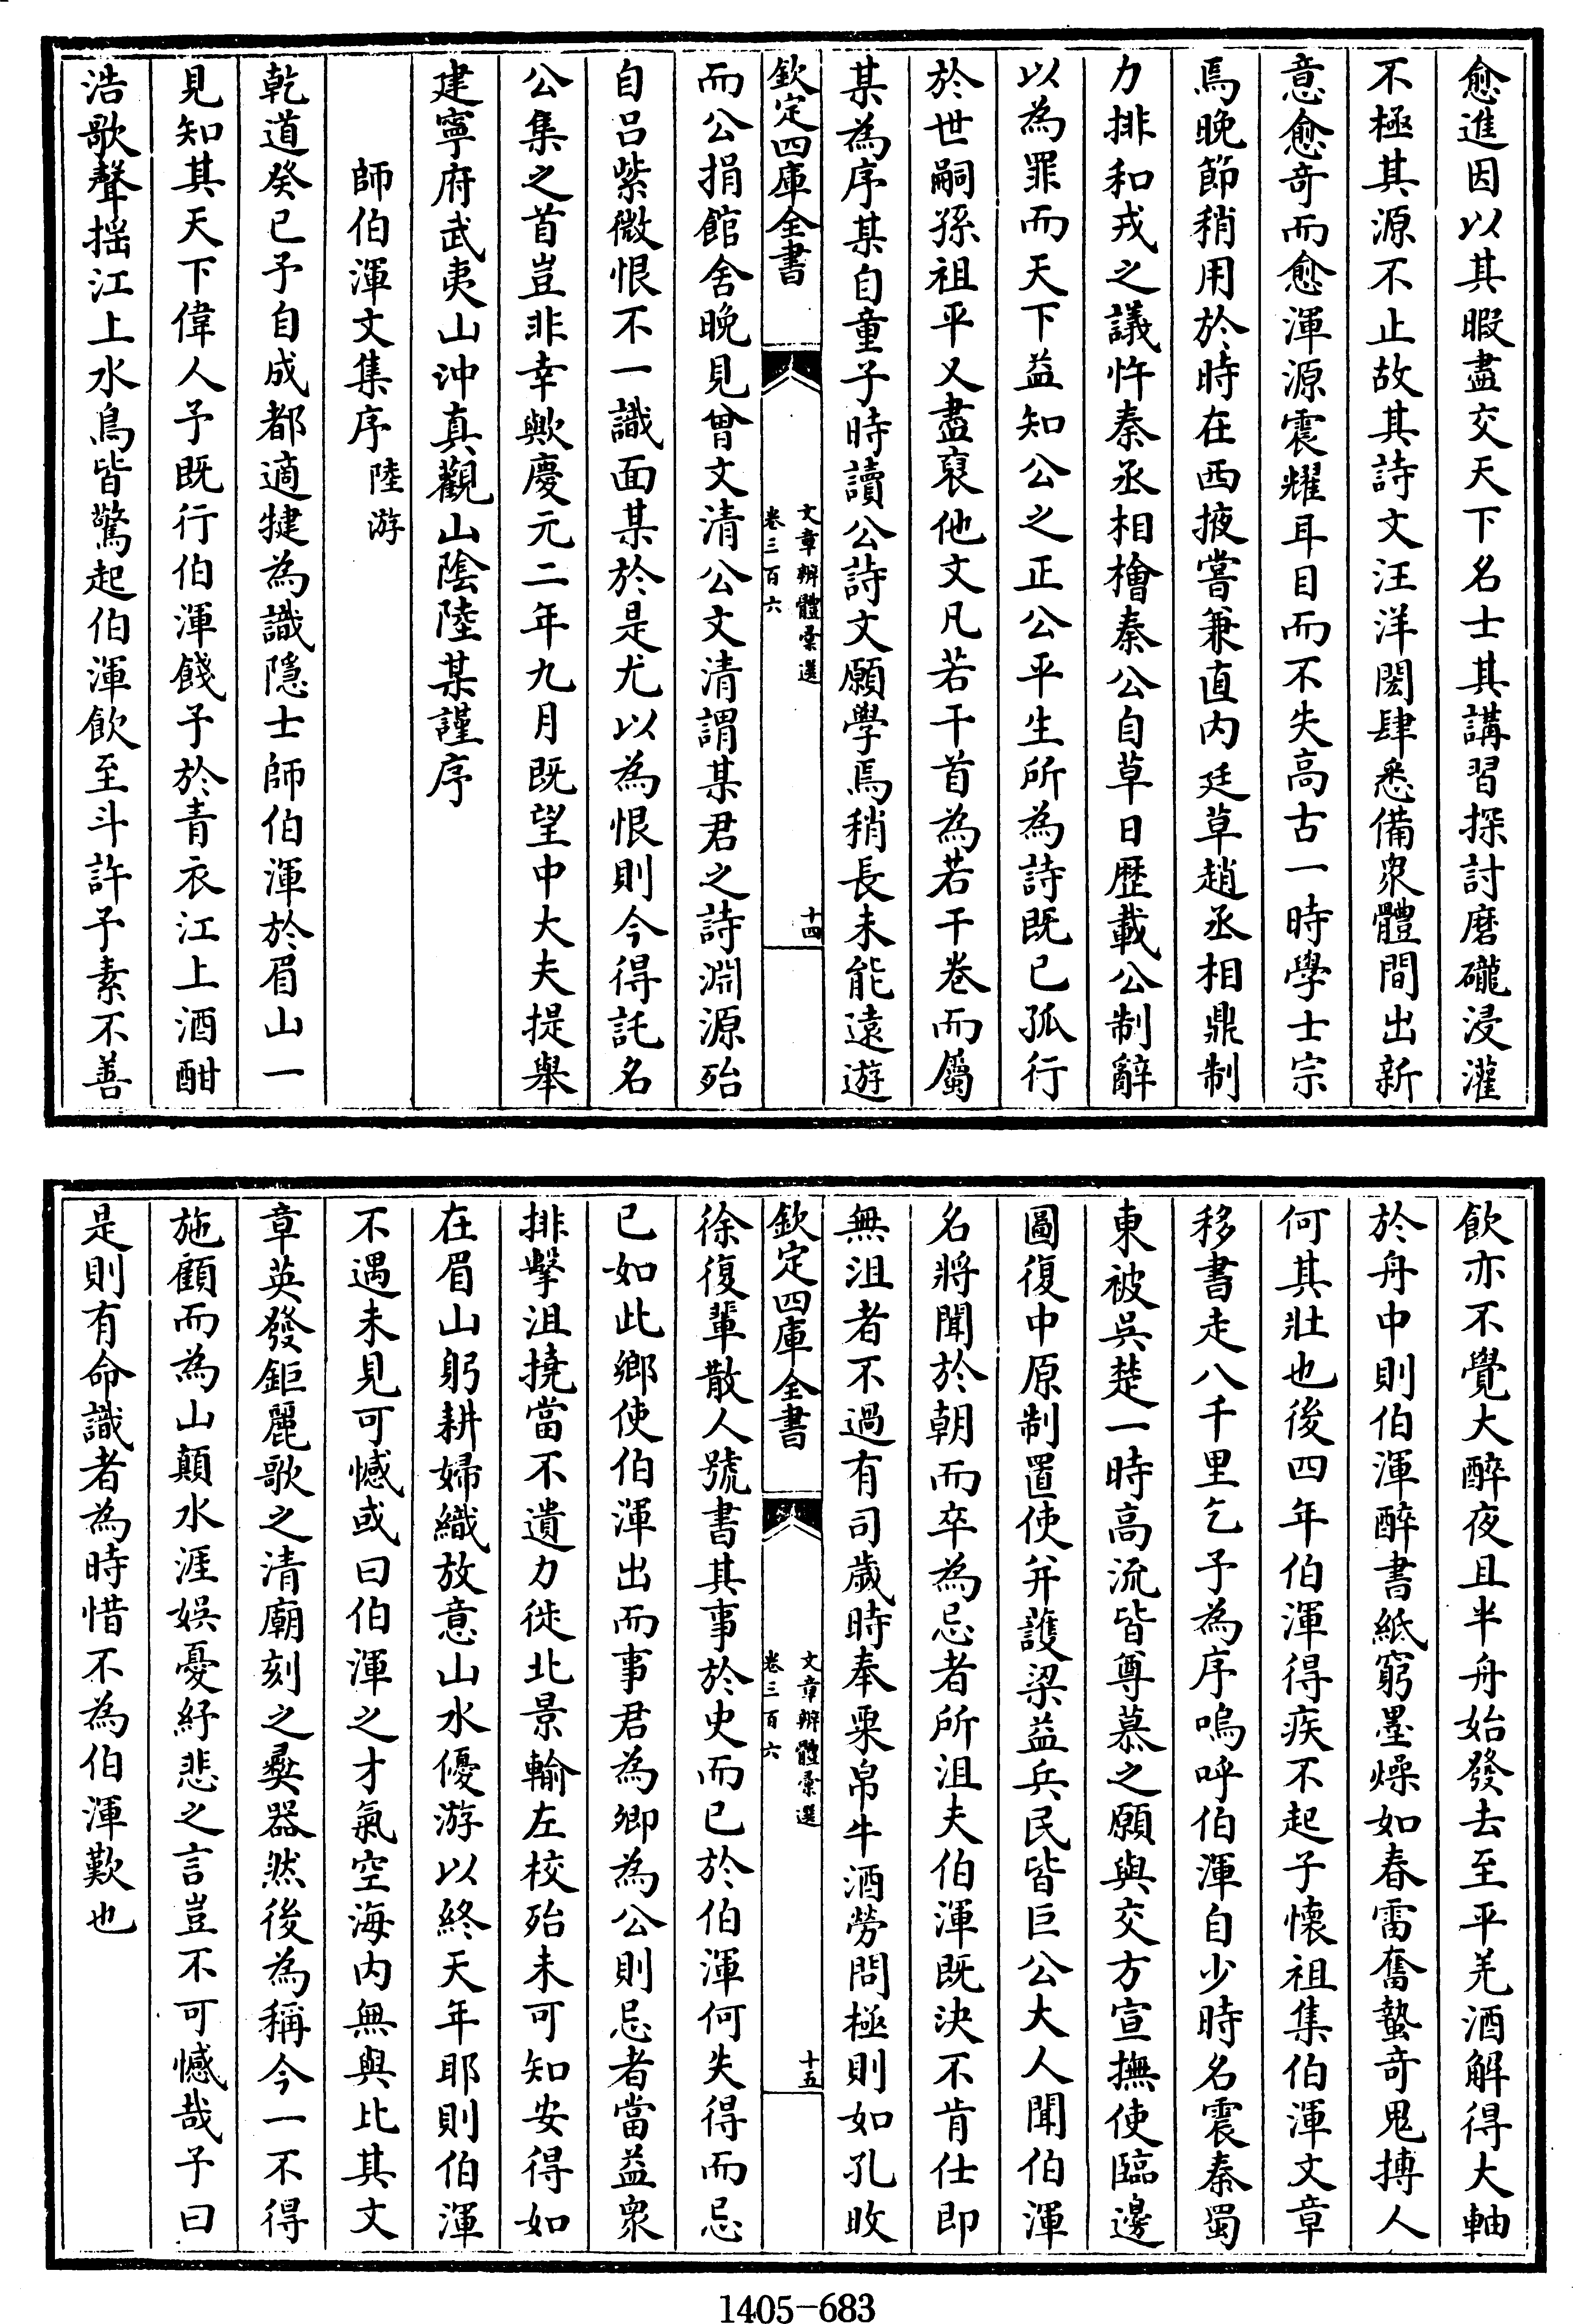 愈進因以其暇盡交天下名士其講習探討磨礲浸灌
不極其源不止故其詩文汪洋閎肆悉備衆體間出新
意愈奇而愈渾源震耀耳目而不失高古一時學士宗
焉晚節稍用於時在西掖嘗兼直内廷草趙丞相鼎制
力排和戎之議忤秦丞相檜秦公自草日歴載公制辭
以為罪而天下益知公之正公平生所為詩既已孤行
於世嗣孫祖平又盡裒他文凡若干首為若干卷而屬
某為序某自童子時讀公詩文願學焉稍長未能遠遊
欽定四庫全書
文章辨體彙選
卷三百六
十四
而公捐館舍晚見曾文清公文清謂某君之詩淵源殆
自呂紫微恨不一識面某於是尤以為恨則今得託名
公集之首豈非幸歟慶元二年九月既望中大夫提舉
建寧府武夷山沖真觀山隂陸某謹序
師伯渾文集序 陸游
乾道癸已予自成都適犍為識隱士師伯渾於眉山一
見知其天下偉人予既行伯渾餞予於青衣江上酒酣
浩歌聲揺江上水鳥皆驚起伯渾飲至斗許予素不善
飲亦不覺大醉夜且半舟始發去至平羌酒解得大軸
於舟中則伯渾醉書紙窮墨燥如春雷奮蟄奇鬼搏人
何其壯也後四年伯渾得疾不起子懷祖集伯渾文章
移書走八千里乞予為序嗚呼伯渾自少時名震秦蜀
東被吳楚一時高流皆尊慕之願與交方宣撫使臨邊
圖復中原制置使并護梁益兵民皆巨公大人聞伯渾
名將聞於朝而卒為忌者所沮夫伯渾既決不肯仕即
無沮者不過有司歲時奉粟帛牛酒勞問極則如孔旼
欽定四庫全書
文章辨體彙選
卷三百六
十五
徐復輩散人號書其事於史而已於伯渾何失得而忌
已如此鄉使伯渾出而事君為卿為公則忌者當益衆
排擊沮撓當不遺力徙北景輸左校殆未可知安得如
在眉山躬耕婦織放意山水優游以終天年耶則伯渾
不遇未見可憾或曰伯渾之才氣空海内無與比其文
章英發鉅麗歌之清廟刻之彛器然後為稱今一不得
施顧而為山顛水涯娛憂紓悲之言豈不可憾哉予曰
是則有命識者為時惜不為伯渾歎也
1405-683